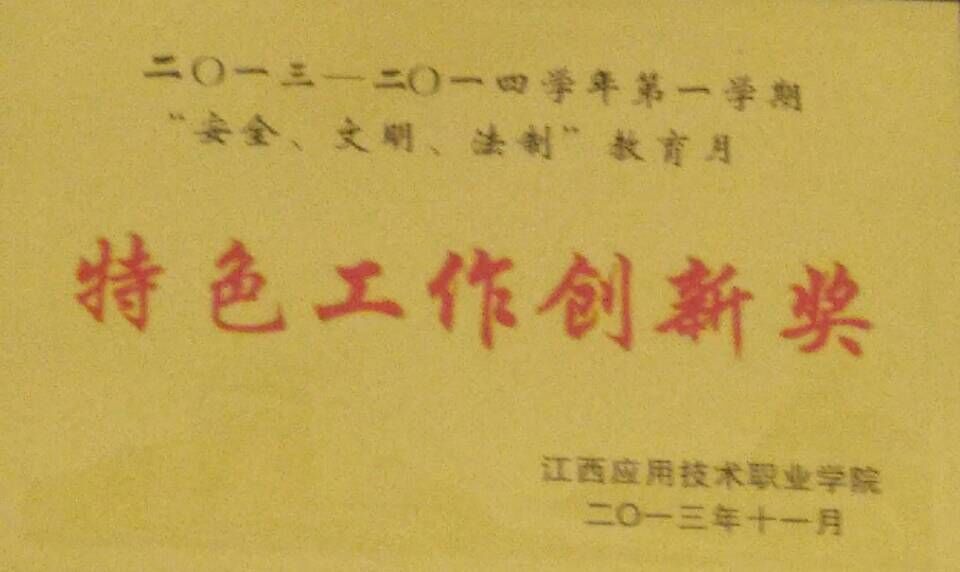 二〇一三—二〇一四学年第一学期
“安全、文明、法制”教育月
特色工作创新奖
江西应用技术职业学院
二〇一三年十一月